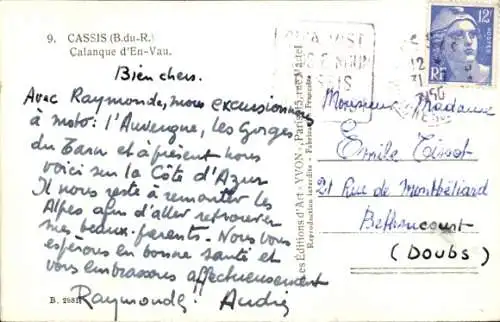 9. CASSIS (B.du-R.)
Calanque d'En-Vau.
Bien chers.
Avec Raymonde, nous excursionnons
à moto: l'Auvergne, les Gorges
du Tarn et à présent nous
voici sur la Côte d'Azur
Il nous reste à remonter les
Alpes afin d'aller retrouver
mes beaux-parents. Nous vous
espérons en bonne santé et
vous embrassons affectueusement
Raymonde André
B. 2981
Les Editions d'Art "YVON", Paris, 15, rue Martel
Reproduction interdite - Fabrication Française
12F
POSTES
RF
12
31
50
Monsieur Madame
Emile Tissot
21 Rue de Montbéliard
Bethoncourt
(Doubs)